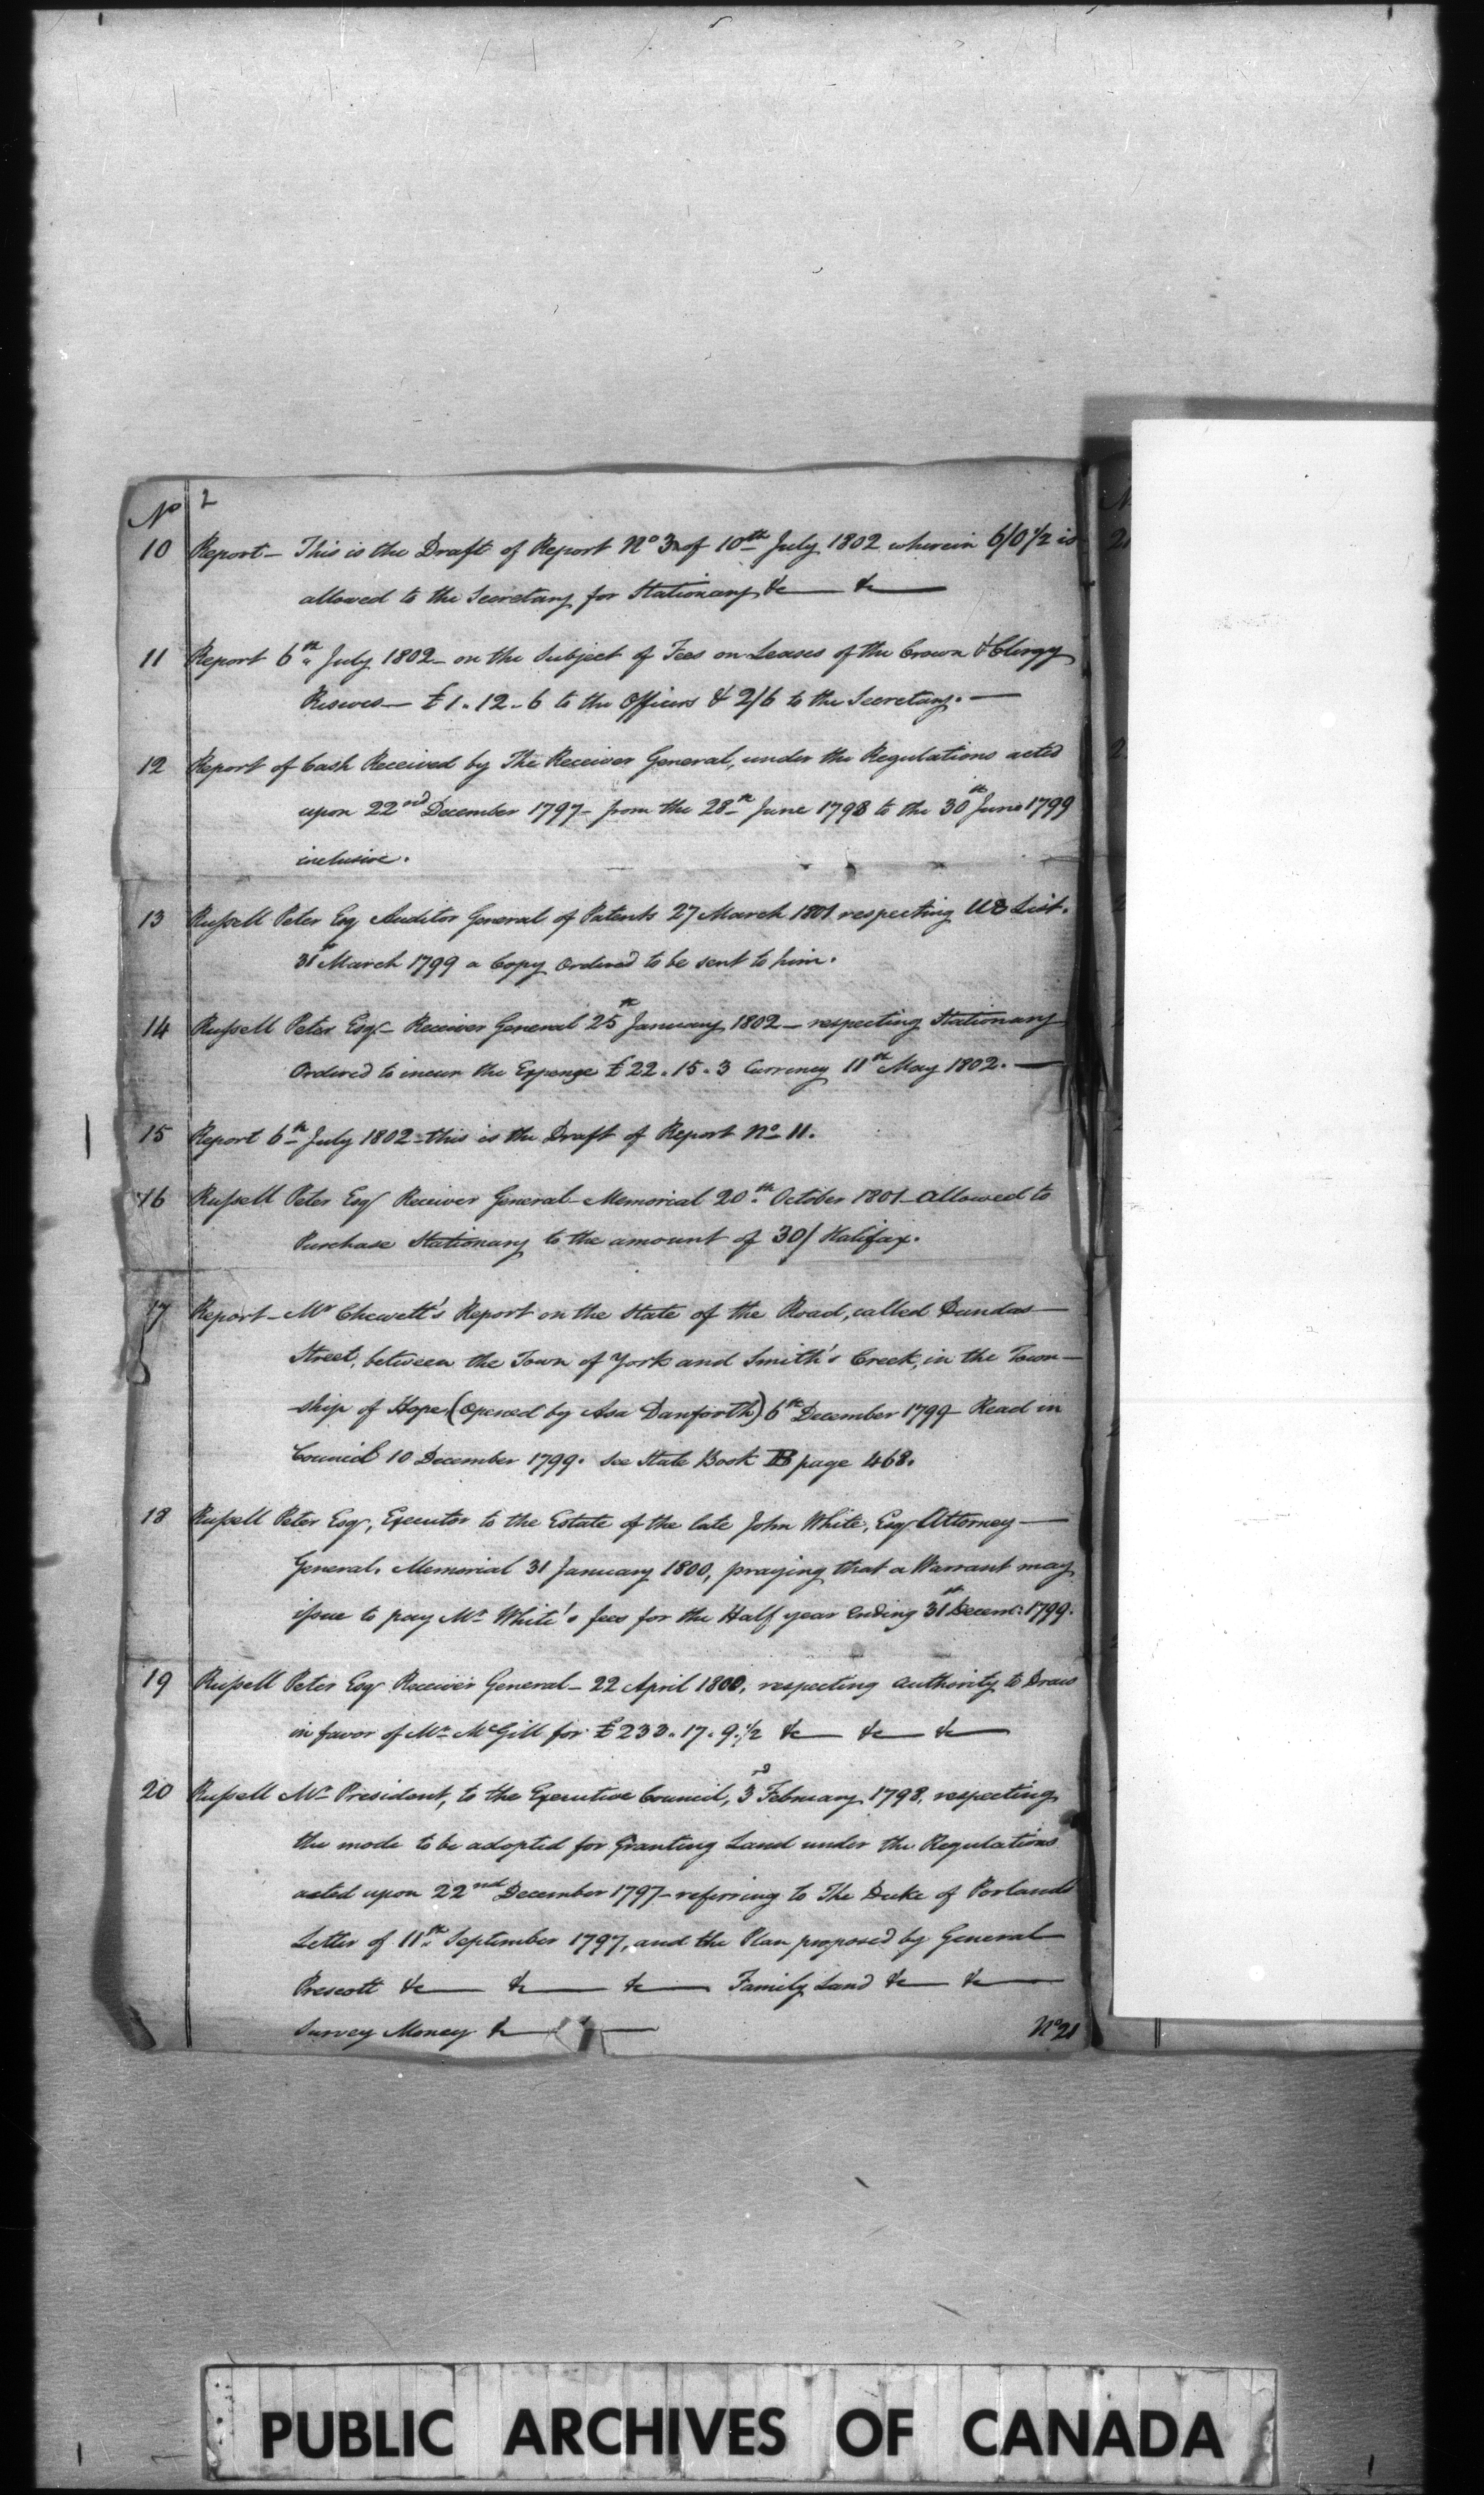 No 2
10 Report — This is the Draft of Report No 3 of 10th July 1802 wherein 6/0 1/2 is
allowed to the Secretary for Stationary &c — &c —
11 Report 6th July 1802 — on the Subject of Fees on Leases of the Crown & Clergy
Reserves — £1.12.6 to the Officers & 2/6 to the Secretary. —
12 Report of Cash Received by The Receiver General, under the Regulations acted
upon 22nd December 1797 — from the 28th June 1798 to the 30th June 1799
inclusive.
13 Russell Peter Esq Auditor General of Patents 27 March 1801 respecting UE List.
31st March 1799 a Copy Ordered to be sent to him.
14 Russell Peter Esqr — Receiver General 25th January 1802 — respecting Stationary
Ordered to incur the Expense £22.15.3 Currency 11th May 1802. —
15 Report 6th July 1802 — this is the Draft of Report No 11.
16 Russell Peter Esqr Receiver General — Memorial 20th October 1801 — allowed to
Purchase Stationary to the amount of 30/ Halifax.
17 Report — Mr Chewett's Report on the State of the Road, called Dundas —
Street, between the Town of York and Smith's Creek, in the Town —
ship of Hope, (opened by Asa Danforth) 6th December 1799 — Read in
Council 10 December 1799. See State Book B page 468.
18 Russell Peter Esqr, Executor to the Estate of the late John White, Esqr Attorney —
General. Memorial 31 January 1800, praying that a Warrant may
issue to pay Mr White's fees for the Half year Ending 31st Decem: 1799.
19 Russell Peter Esqr Receiver General — 22 April 1800, respecting authority to Draw
in favor of Mr McGill for £233.17.9.1/2 &c — &c — &c —
20 Russell Mr President, to the Executive Council, 3rd February 1798, respecting
the mode to be adopted for Granting Land under the Regulations
acted upon 22nd December 1797 — referring to The Duke of Porlands
Letter of 11th September 1797, and the Plan proposed by General
Prescott &c — &c — &c — Family Land &c — &c —
Survey Money &c —
No 21
PUBLIC ARCHIVES OF CANADA